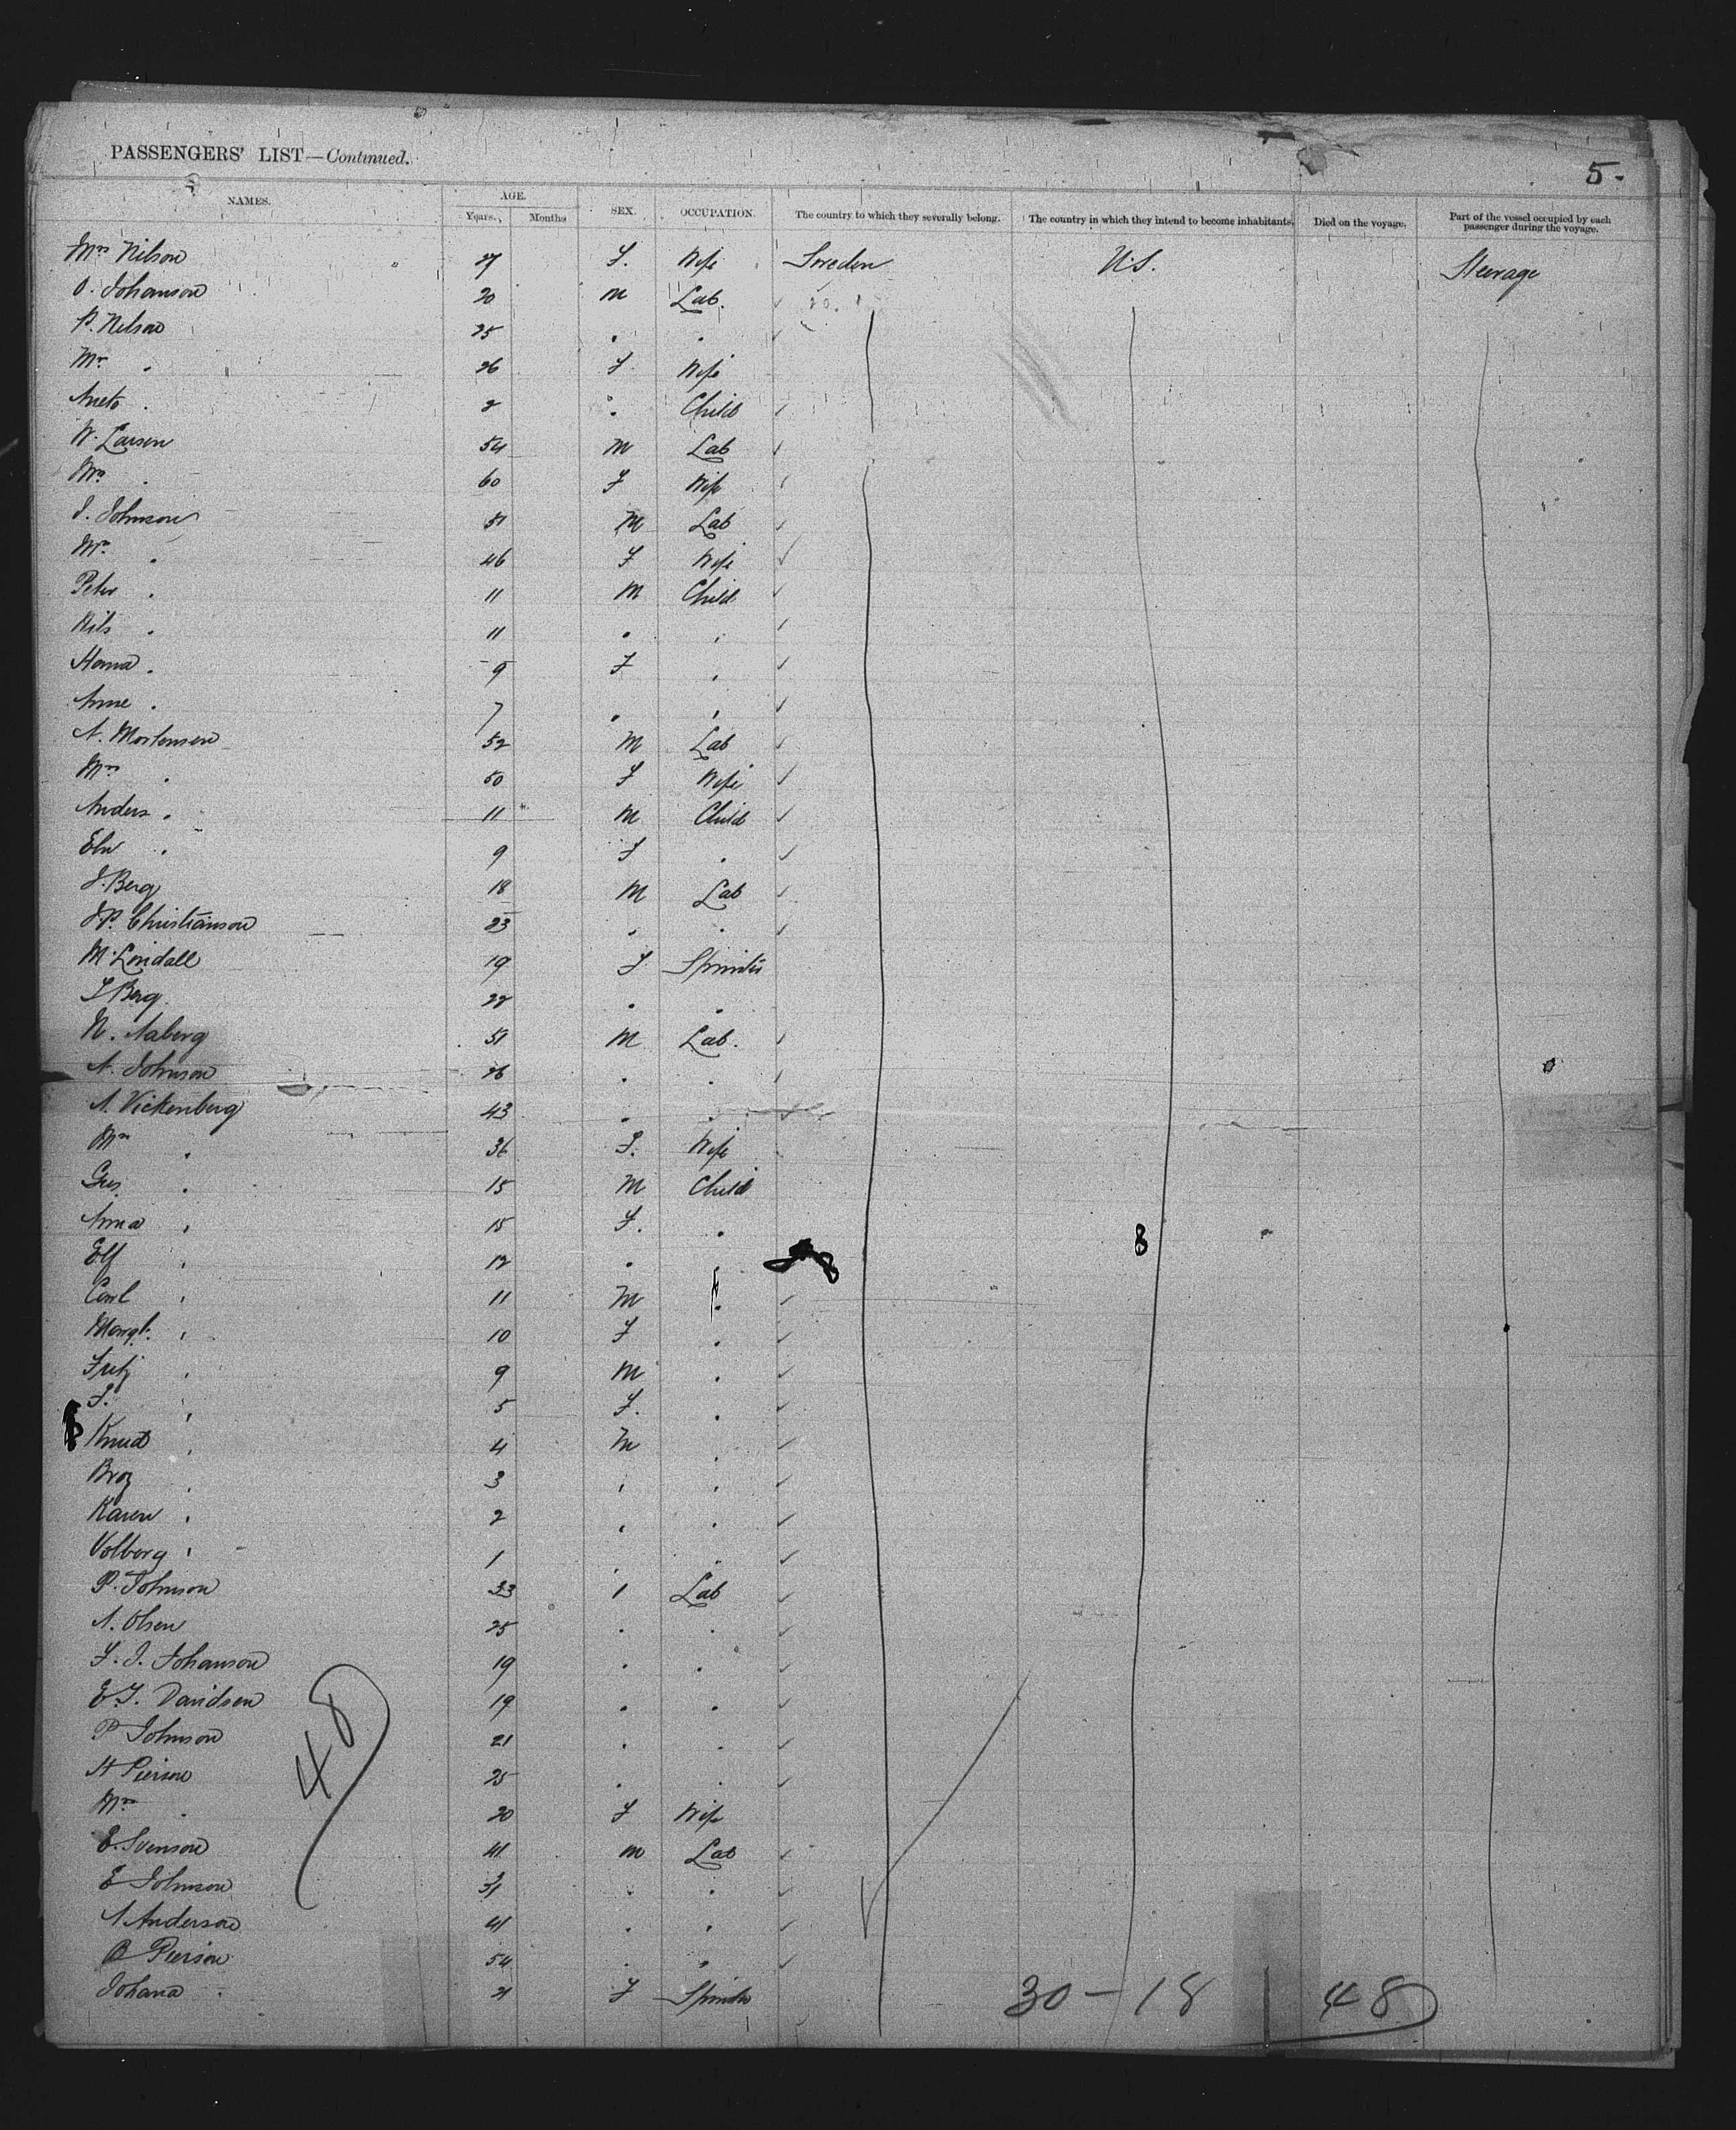 PASSENGERS' LIST—Continued.
5-
NAMES. AGE. Years. Months SEX. OCCUPATION. The country to which they severally belong. The country in which they intend to become inhabitants. Died on the voyage. Part of the vessel occupied by each passenger during the voyage.
Mrs Nilson 27 F. Wife Sweden U.S. Steerage
O. Johanson 20 M Lab.
P. Nelson 25 " "
Mrs " 26 F. Wife
" 2 " Child
W. Larsen 54 M Lab
Mrs " 60 F Wife
J. Johnson 51 M Lab
Mrs " 46 F Wife
Peter " 11 M Child
Nils " 11 " "
Hanna " 9 F "
Anne " 7 " "
A. Mortensen 52 M Lab
Mrs " 50 F Wife
Anders " 11 M Child
" 9 F "
J. Berg 18 M Lab
J.P. Christianson 23 " "
M. Lindall 19 F Spinster
Berg 22 " "
N. Aaberg 51 M Lab.
A. Johnson 26 " "
A. Vickenberg 43 " "
Mrs " 36 F. Wife
Gus. " 15 M Child
Anna " 15 F. "
Elf " 12 " "
Carl " 11 M "
Margt. " 10 F "
Fritz " 9 M "
" 5 F. "
Knud " 4 M "
" 3 " "
Karen " 2 " "
Volborg " 1 " "
P. Johnson 33 " Lab
A. Olsen 25 " "
F. J. Johanson 19 " "
E. J. Davidsen 19 " "
P Johnson 21 " "
H Pierson 25 " "
Mrs " 20 F Wife
E. Svenson 41 M Lab
E Johnson 31 " "
A Anderson 41 " "
B Pierson 54 " "
Johana " 21 F Spinster
48
30 - 18 | 48